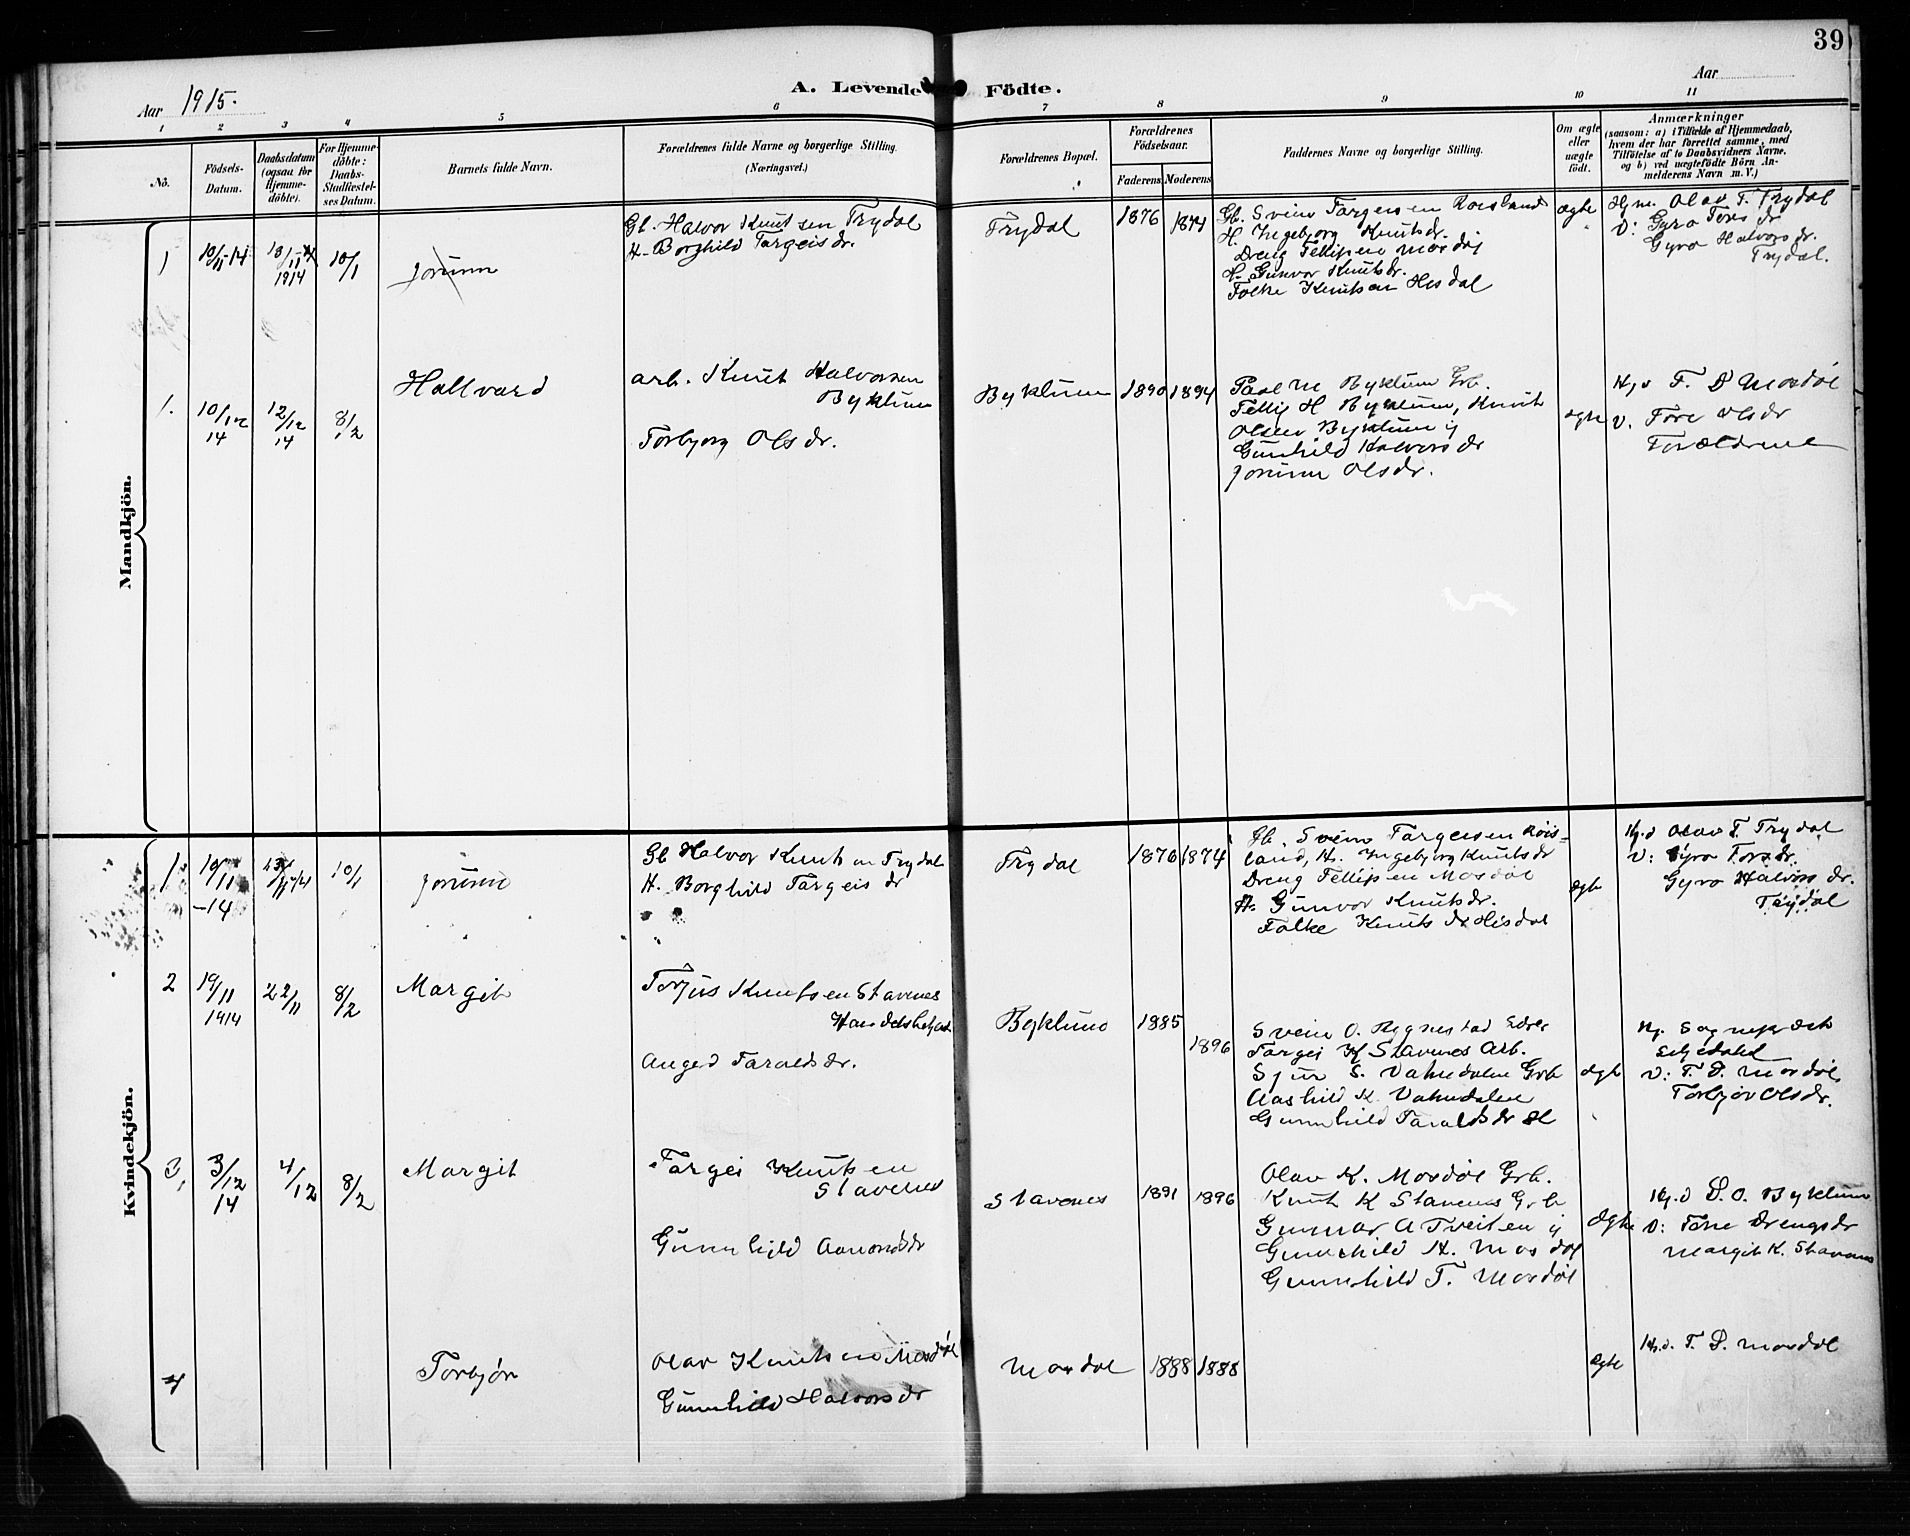 39
Aar 1915.
A. Levende Födte.
Aar
1 2 3 4 5 6 7 8 9 10 11
No.
Födsels-Datum.
Daabsdatum (ogsaa for Hjemme-döbte).
For Hjemme-döbte: Daabs-Stadfæstel-ses Datum.
Barnets fulde Navn.
Forældrenes fulde Navne og borgerlige Stilling. (Næringsvei.)
Forældrenes Bopæl.
Forældrenes Födselsaar.
Faderens Moderens
Faddernes Navne og borgerlige Stilling.
Om ægte eller uægte födt.
Anmærkninger
(saasom: a) i Tilfælde af Hjemmedaab,
hvem der har forrettet samme, med
Tilföielse af to Daabsvidners Navne,
og b) ved uægtefödte Börn An-
melderens Navn m. V.)
Mandkjön.
1 10/11-14 13/11 1914 10/1
Jorunn
Gb. Halvor Knutsen Trydal
H. Borghild Targeisdr.
Trydal
1876 1874
Gb. Svein Targeisen Roisland
H. Ingebjorg Knutsdr.
Dreng Tellefsen Mosdöl
H. Gunvor Knutsdr.
Folke Knutsen Hisdal
ægte
Hjm. Olav T. Trydal
V: Gyro Tores dr
Gyro Halvorsdr.
Trydal.
1. 10/12 14 12/12 14 8/2
Hallvard
arb. Knut Halvorsen
Byklum
Torbjorg Olsdr.
Byklum
1890 1894
Paal M Byklum Grb.
Tellef H Byklum, Knut
Olsen Byklum
Gunhild Halvorsdr
Jorunn Olsdr.
ægte
Hj. v T. D Mosdöl
V. Tore Olsdr
Forældrene
Kvindekjön.
1. 10/11 -14 13/11 10/1
Jorunn
Gb Halvor Knutsen Trydal
H. Borghild Targeisdr
Trydal
1876 1874
Gb. Svein Targeisen Röis-
land, H. Ingebjorg Knutsdr
Dreng Tellefsen Mosdöl
H. Gunvor Knutsdr.
Folke Knutsdr Hisdal
ægte
Hj. v Olav T Trydal
V: Gyro Toresdr.
Gyro Halvorsdr.
Trydal
2 19/11 1914 22/11 8/2
Margit
Torjus Knutsen Stavenes
Anged Taraldsdr.
Byklum
1885
1896
Svein O. Rygnestad
Targei K Stavenes Arb.
Sjur S. Vatnedalen Grb
Aashild K. Vatnedalen
Gunnhild Taraldsdr
ægte
V: T. D. Mosdöl
Torbjör Olsdr.
3, 3/12 14 4/12 8/2
Margit
Targei Knutsen
Stavenes
Gunnhild Aanondsdr
Stavenes
1891 1896
Olav K. Mosdöl Grb.
Knut K Stavenes Grb
Gunnar A Tveiten
Gunnhild H. Mosdöl
Gunnhild T. Mosdöl
ægte
Hj. v D. O. Byklum
V: Tone Drengsdr
Margit K. Stavenes
4
Torbjör
Olav Knutsen Mosdöl
Gunnhild Halvorsdr
Mosdöl
1888 1888
ægte
Hj. v. T. D. Mosdöl